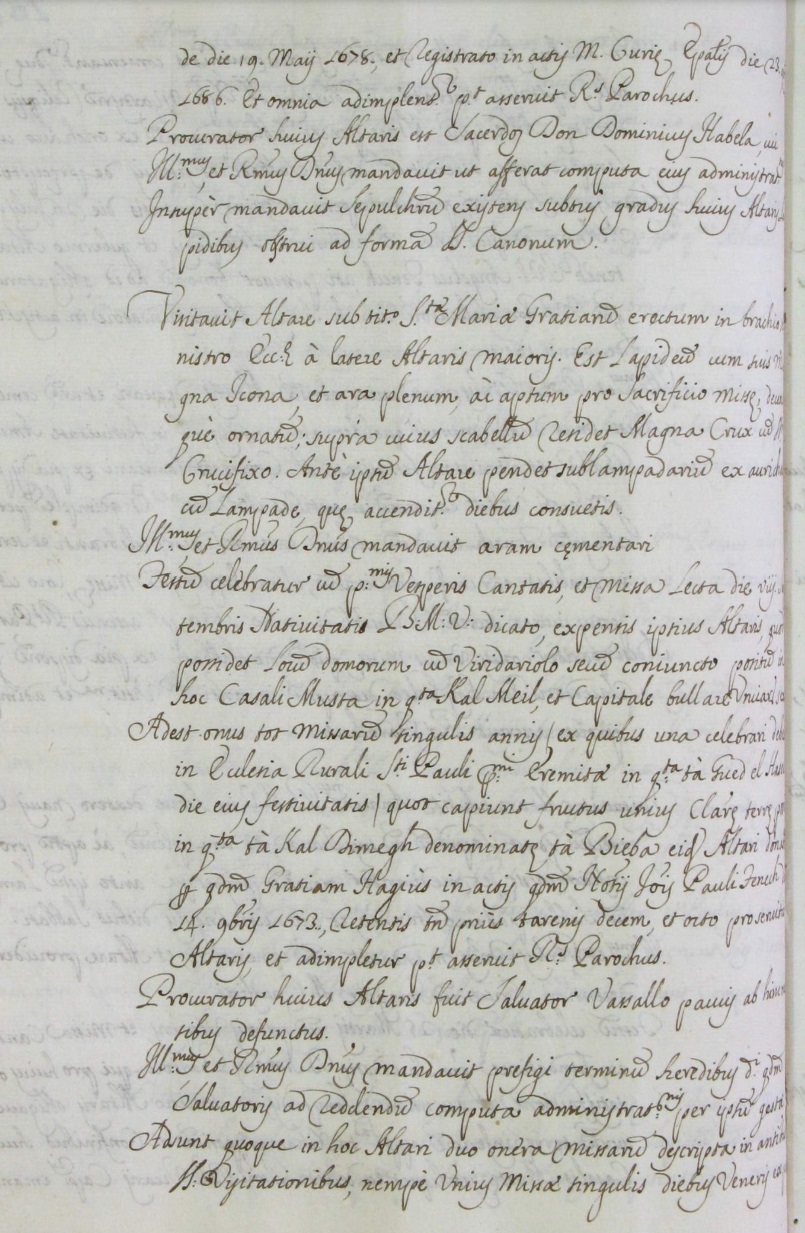 de die 19. Maij 1678., et Registrato in actis M. Curię Epālis die 23
1686. Et omnia adimplent.r pt asseruit Rs Parochus.
Procurator huius Altaris est Sacerdos Don Dominicus Habela, cui
Ill:mus et Rm̄us Dn̄us mandauit ut afferat computa eius administrat
Insupèr mandauit Sepulchrū existens subtus gradus huius Altaris
pidibus obstrui ad formā S. Canonum.
Visitauit Altare sub tit.o S.tæ Mariæ Gratiarū erectum in brachio
nistro Ecc:ę à latere Altaris maioris. Est Lapideū cum suis
gna Icona, et ara plenum, àc aptum pro Sacrificio Missę,
què ornatū; suprà cuius scabellū residet Magna Crux cū
Crucifixo. Antè ipsū Altare pendet sublampadariū ex
cū Lampade, quę accendit.r diebus consuetis.
Ill:mus et Rm̄us Dn̄us mandauit aram cęmentari
Festū celebratur cū p:mis Vesperis Cantatis, et Missa Lecta die viij.
tembris Natiuitatis B: M: V: dicato, expensis ipsius Altaris,
possidet Locū domorum cū Viridariolo secū coniuncto positū
hoc Casali Musta in q.ta Kal Meil, et Capitale bullare
Adest onus tot Missarū singulis annis (ex quibus una celebrari
in Ecclesia Rurali S:ti Pauli p:mi Eremitæ in q.ta tà Gued el
die eius festiuitatis) quot capiunt fructus unius Clarę terrę
in q.ta tà Kal Dimegh denominatę tà Bieba eid Altari
p qdm̄ Gratiam Hagius in actis qdm̄ Notij Jois Pauli Fenech
14. 9bris 1673., Retentis tn̄ priùs tarenis decem, et octo pro seruitio
Altaris, et adimpletur pt asseruit Rs Parochus.
Procurator huius Altaris fuit Saluator Vassallo paucis ab hinc
tibus defunctus.
Ill:mus et Rm̄us Dn̄us mandauit prefigi terminū heredibus d.i qdm̄
Saluatoris ad reddendū computa administrat.nis per ipsū
Adsunt quoque in hoc Altari duo onera Missarū descripta in
S. Visitationibus, nempè Unius Missæ singulis diebus Veneris